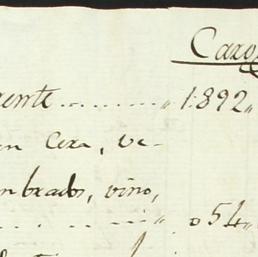 Cargo
rente........„ 1.892„
en Cera, ve-
mbrados, vino,
............„ 054„